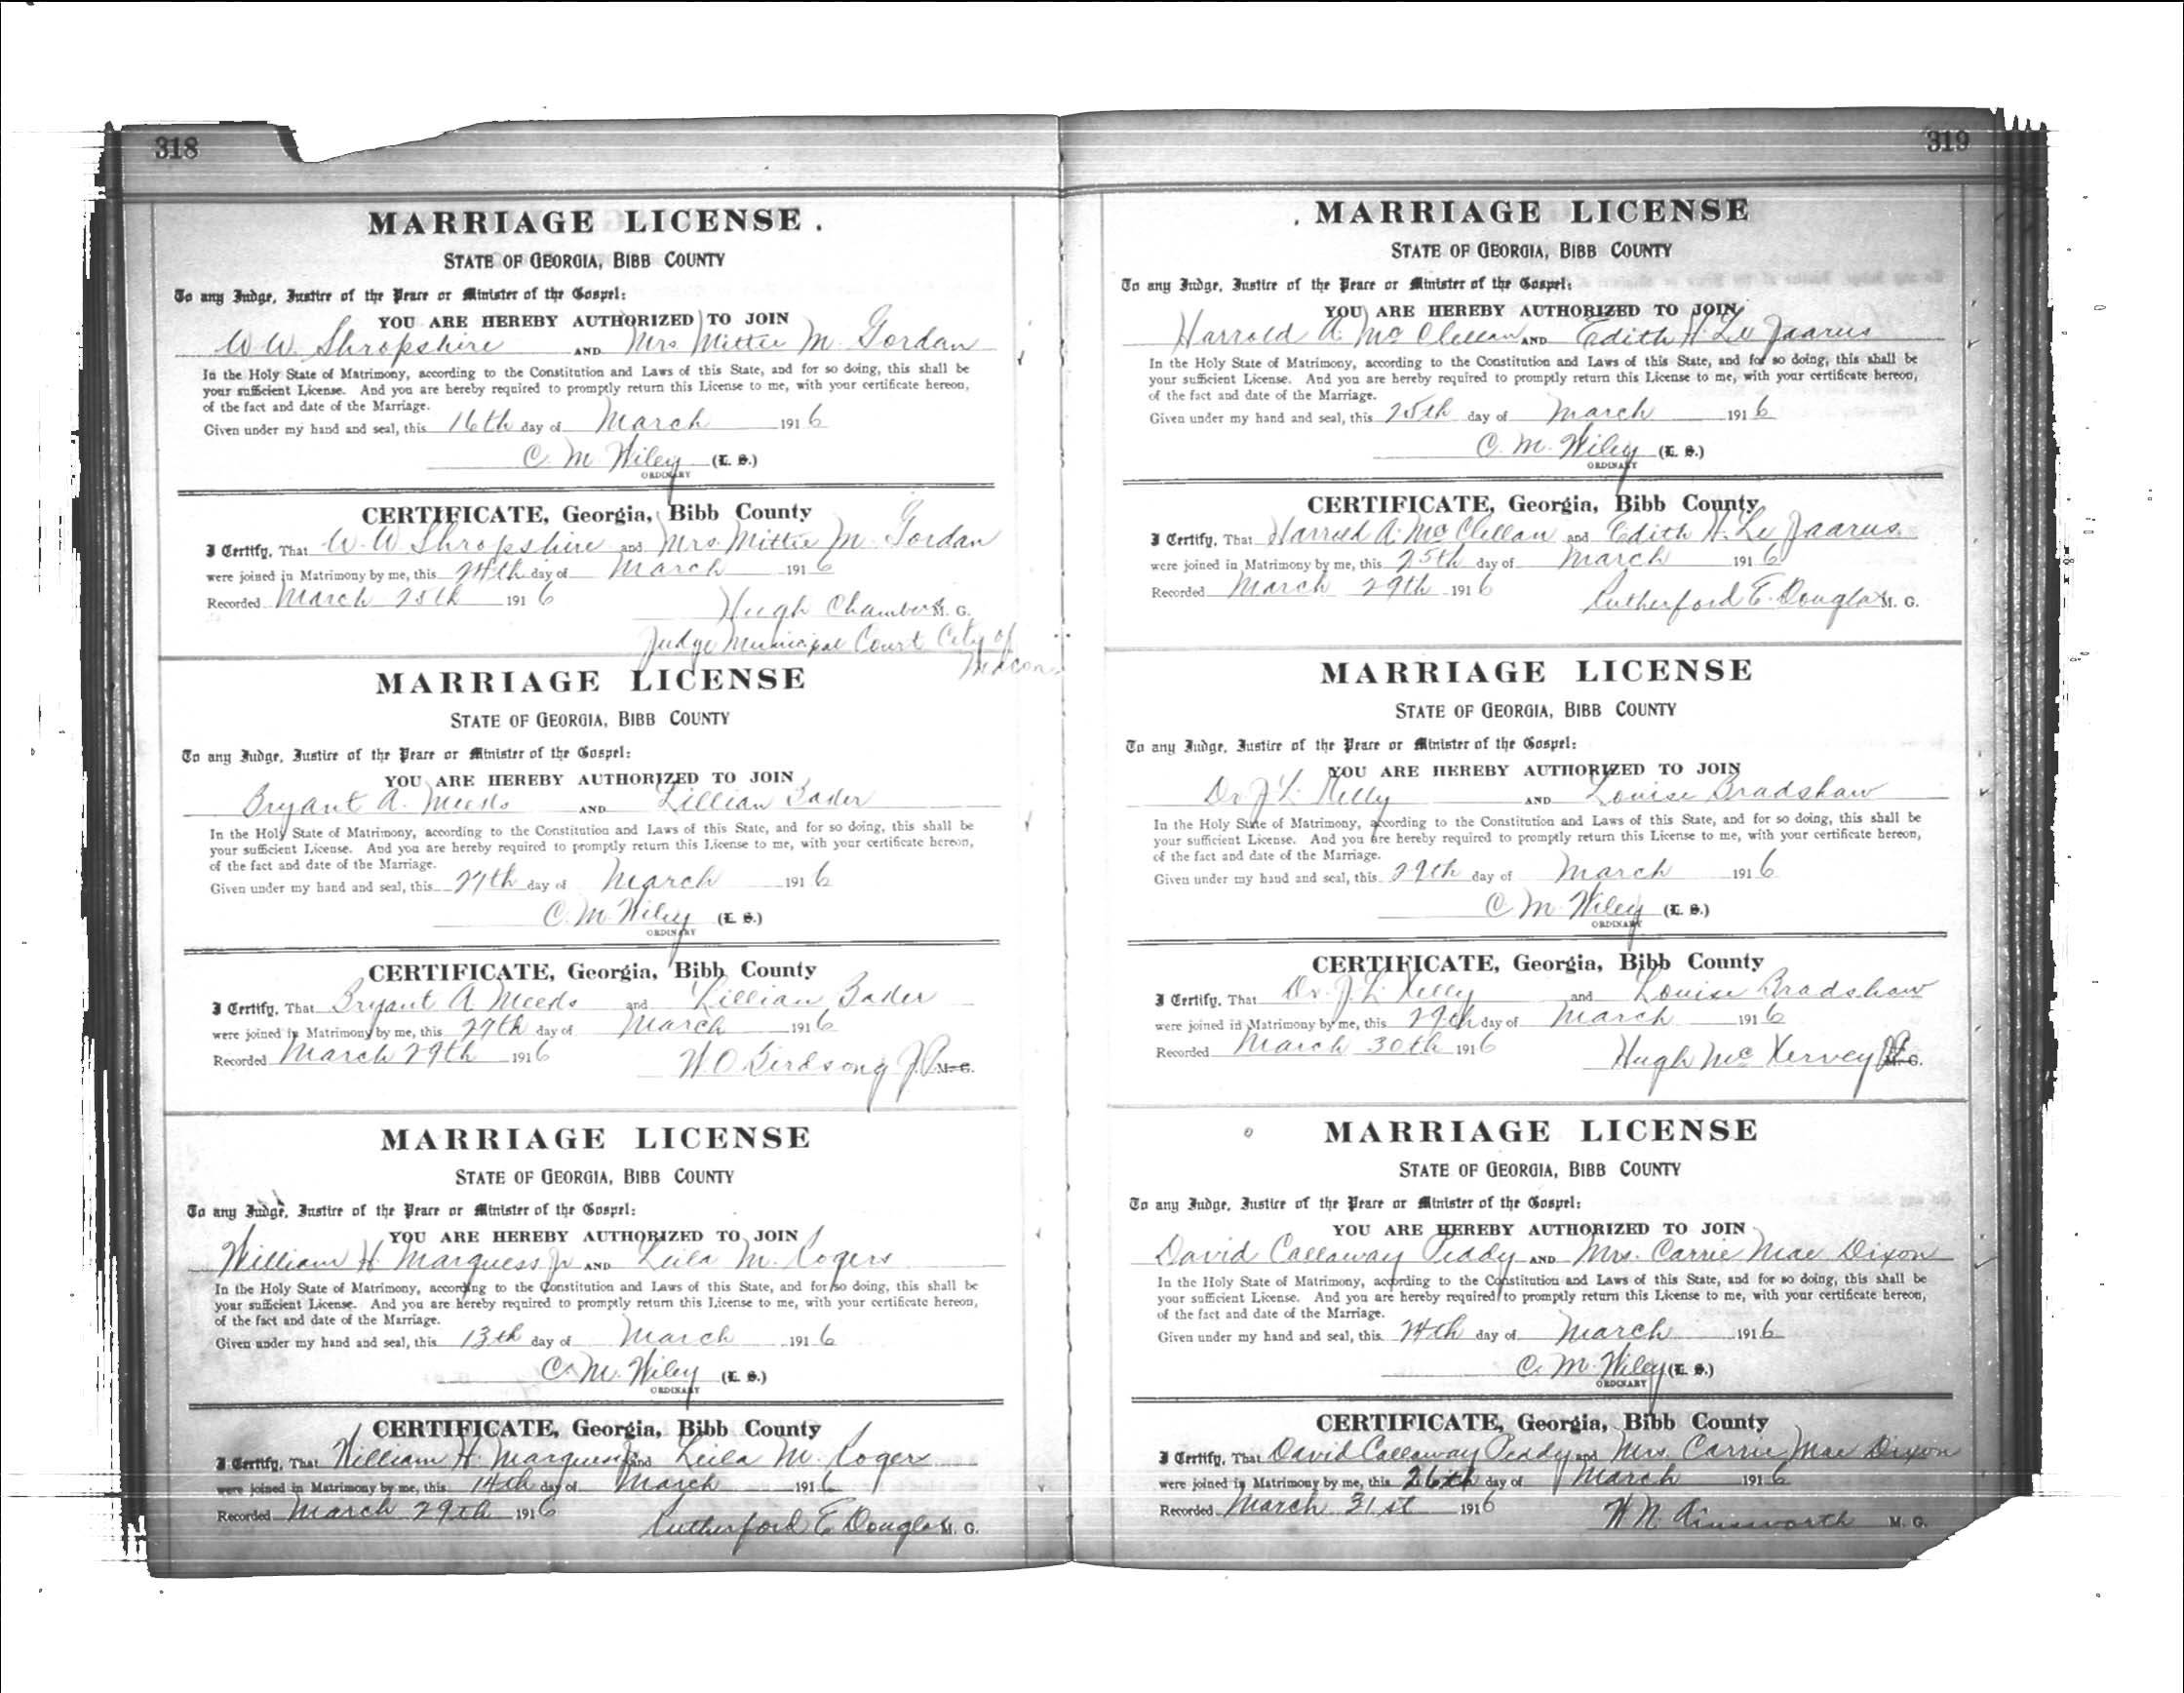 318
MARRIAGE LICENSE.
STATE OF GEORGIA, BIBB COUNTY
To any Judge, Justice of the Peace or Minister of the Gospel:
YOU ARE HEREBY AUTHORIZED TO JOIN
W. W. Shropshire AND Mrs Mittie M. Gordan
In the Holy State of Matrimony, according to the Constitution and Laws of this State, and for so doing, this shall be
your sufficient License. And you are hereby required to promptly return this License to me, with your certificate hereon,
of the fact and date of the Marriage.
Given under my hand and seal, this 16th day of March 1916
C. M Wiley (L. S.)
ORDINARY
CERTIFICATE, Georgia, Bibb County
I Certify, That W. W Shropshire and Mrs. Mittie M. Gordan
were joined in Matrimony by me, this 24th day of March 1916
Recorded March 25th 1916
Hugh Chambers M. G.
Judge Municipal Court City of
Macon
MARRIAGE LICENSE
STATE OF GEORGIA, BIBB COUNTY
To any Judge, Justice of the Peace or Minister of the Gospel:
YOU ARE HEREBY AUTHORIZED TO JOIN
Bryant A. Meeds AND Lillian Bader
In the Holy State of Matrimony, according to the Constitution and Laws of this State, and for so doing, this shall be
your sufficient License. And you are hereby required to promptly return this License to me, with your certificate hereon,
of the fact and date of the Marriage.
Given under my hand and seal, this 27th day of March 1916
C. M. Wiley (L. S.)
ORDINARY
CERTIFICATE, Georgia, Bibb County
I Certify, That Bryant A Meeds and Lillian Bader
were joined in Matrimony by me, this 27th day of March 1916
Recorded March 29th 1916
W. O Birdsong J. P. M. G.
MARRIAGE LICENSE
STATE OF GEORGIA, BIBB COUNTY
To any Judge, Justice of the Peace or Minister of the Gospel:
YOU ARE HEREBY AUTHORIZED TO JOIN
William H. Marquess Jr AND Leila M. Rogers
In the Holy State of Matrimony, according to the Constitution and Laws of this State, and for so doing, this shall be
your sufficient License. And you are hereby required to promptly return this License to me, with your certificate hereon,
of the fact and date of the Marriage.
Given under my hand and seal, this 13th day of March 1916
C. M. Wiley (L. S.)
ORDINARY
CERTIFICATE, Georgia, Bibb County
I Certify, That William H. Marquess Jr and Leila M. Rogers
were joined in Matrimony by me, this 14th day of March 1916
Recorded March 29th 1916
Rutherford E Douglas M. G.
319
MARRIAGE LICENSE
STATE OF GEORGIA, BIBB COUNTY
To any Judge, Justice of the Peace or Minister of the Gospel:
YOU ARE HEREBY AUTHORIZED TO JOIN
Harrold A. McClellan AND Edith H. Le
In the Holy State of Matrimony, according to the Constitution and Laws of this State, and for so doing, this shall be
your sufficient License. And you are hereby required to promptly return this License to me, with your certificate hereon,
of the fact and date of the Marriage.
Given under my hand and seal, this 25th day of March 1916
C. M. Wiley (L. S.)
ORDINARY
CERTIFICATE, Georgia, Bibb County
I Certify, That Harrold A. McClellan and Edith H. Le
were joined in Matrimony by me, this 25th day of March 1916
Recorded March 29th 1916
Rutherford E. Douglas M. G.
MARRIAGE LICENSE
STATE OF GEORGIA, BIBB COUNTY
To any Judge, Justice of the Peace or Minister of the Gospel:
YOU ARE HEREBY AUTHORIZED TO JOIN
Dr. J. L. Kelly AND Louise Bradshaw
In the Holy State of Matrimony, according to the Constitution and Laws of this State, and for so doing, this shall be
your sufficient License. And you are hereby required to promptly return this License to me, with your certificate hereon,
of the fact and date of the Marriage.
Given under my hand and seal, this 29th day of March 1916
C. M. Wiley (L. S.)
ORDINARY
CERTIFICATE, Georgia, Bibb County
I Certify, That Dr. J. L. Kelly and Louise Bradshaw
were joined in Matrimony by me, this 29th day of March 1916
Recorded March 30th 1916
Hugh McKervey M. G.
MARRIAGE LICENSE
STATE OF GEORGIA, BIBB COUNTY
To any Judge, Justice of the Peace or Minister of the Gospel:
YOU ARE HEREBY AUTHORIZED TO JOIN
David Callaway Peddy AND Mrs. Carrie Mae Dixon
In the Holy State of Matrimony, according to the Constitution and Laws of this State, and for so doing, this shall be
your sufficient License. And you are hereby required to promptly return this License to me, with your certificate hereon,
of the fact and date of the Marriage.
Given under my hand and seal, this 24th day of March 1916
C. M. Wiley (L. S.)
ORDINARY
CERTIFICATE, Georgia, Bibb County
I Certify, That David Callaway Peddy and Mrs. Carrie Mae Dixon
were joined in Matrimony by me, this 26th day of March 1916
Recorded March 31st 1916
W. N. Ainsworth M. G.